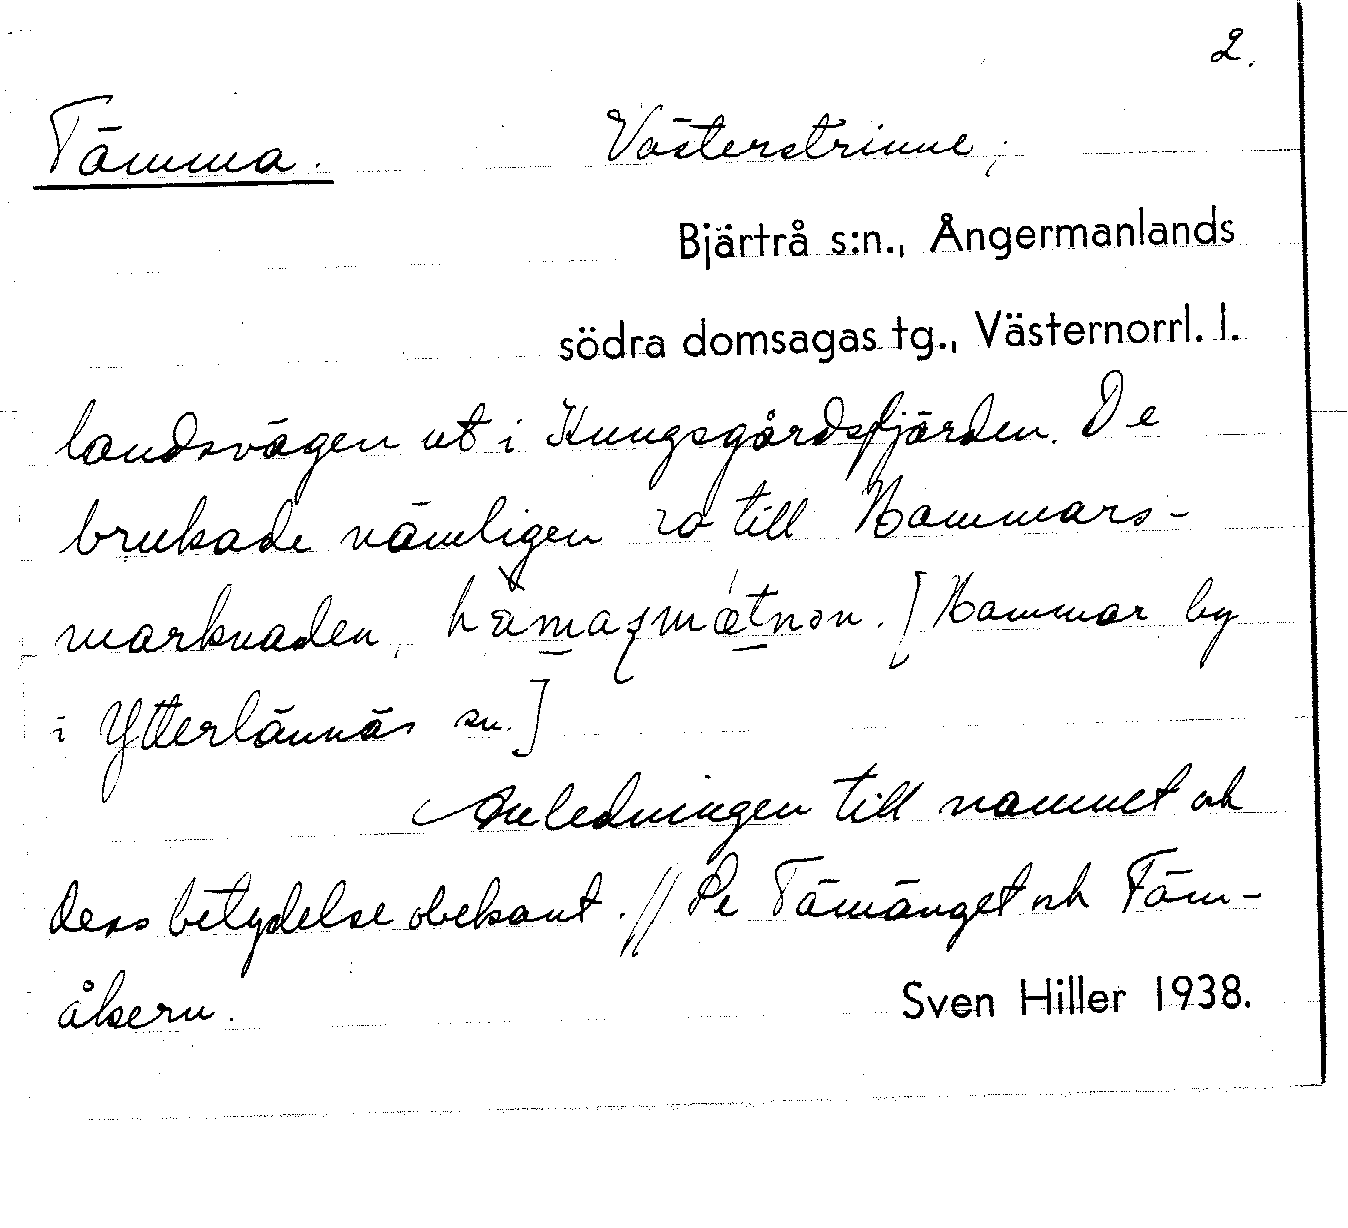 2.
Tämma. Västerstrinne,
Bjärtrå s:n., Ångermanlands
södra domsagas tg., Västernorrl. l.
landsvägen ut i Kungsgårdsfjärden. De
brukade nämligen ro till Hammars-
marknaden, [Hammar by
i Ytterlännäs sn.]
Anledningen till namnet och
dess betydelse obekant. // Se Tämänget och Täm-
åkern.
Sven Hiller 1938.